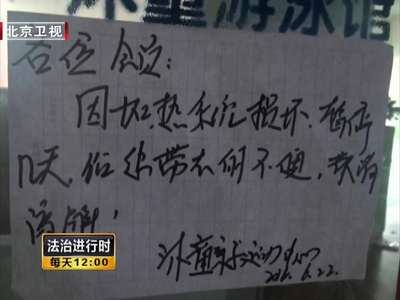 北京卫视
水童游泳馆
各位会员：
因加热系统损坏，暂停
几天，给您带来的不便，敬请
谅解！
水童
6.22.
法治进行时
每天12:00